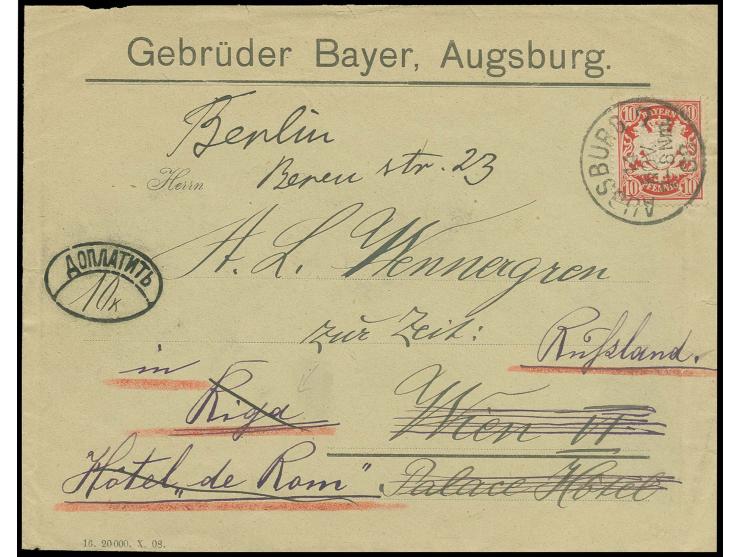 Gebrüder Bayer, Augsburg.
Berlin
Beren str. 23
Herrn
A. L. Wennergren
zur Zeit:
in
Rußland.
Riga
Wien II
Hôtel „de Rom".
Palace Hôtel
ДОПЛАТИТЬ
10к
AUGSBURG
BAYERN
10 10
10 PFENNIG 10
16. 20000. X. 08.